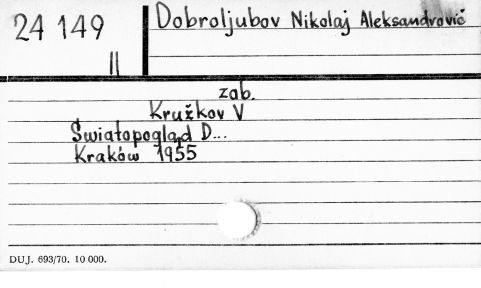 24 149
II
Dobroljubov Nikolaj Aleksandrovič
zob.
Kružkov V
Światopogląd D...
Kraków 1955
DUJ. 693/70. 10 000.